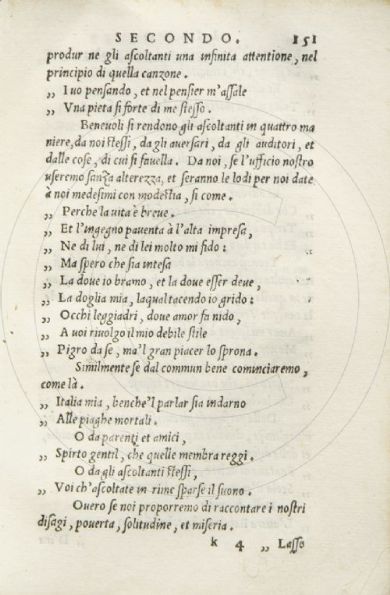 SECONDO. 151
produr ne gli ascoltanti una infinita attentione, nel
principio di quella canzone.
„ I uo pensando, et nel pensier m'assale
„ Vna pieta si forte di me stesso.
Beneuoli si rendono gli ascoltanti in quattro ma
niere, da noi stessi, da gli auersari, da gli auditori, et
dalle cose, di cui si fauella. Da noi, se l'ufficio nostro
useremo sanza alterezza, et seranno le lodi per noi date
à noi medesimi con modestia, si come.
„ Perche la uita è breue.
„ Et l'ingegno pauenta à l'alta impresa,
„ Ne di lui, ne di lei molto mi fido:
„ Ma spero che sia intesa
„ La doue io bramo, et la doue esser deue,
„ La doglia mia, laqual tacendo io grido:
„ Occhi leggiadri, doue amor fa nido,
„ A uoi riuolgo il mio debile stile
„ Pigro da se, ma'l gran piacer lo sprona.
Similmente se dal commun bene cominciaremo,
come là.
„ Italia mia, benche'l parlar sia indarno
„ Alle piaghe mortali.
O da parenti et amici,
„ Spirto gentil, che quelle membra reggi.
O da gli ascoltanti stessi,
„ Voi ch'ascoltate in rime sparse il suono.
Ouero se noi proporremo di raccontare i nostri
disagi, pouerta, solitudine, et miseria.
k 4 „ Lasso